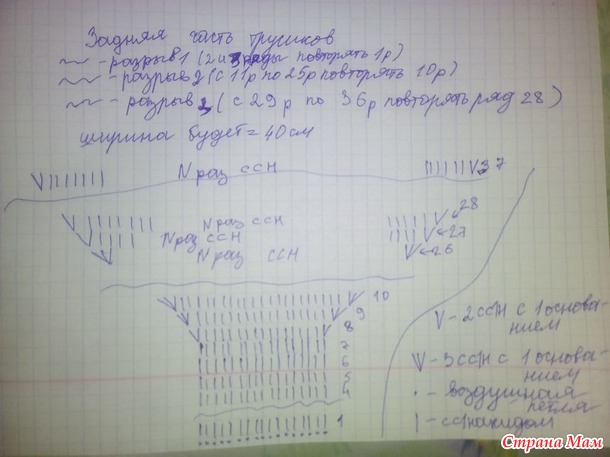 Задняя часть трусиков
- разрыв 1 (2 и 3 ряды повторять 1р)
- разрыв 2 (с 11р по 25р повторять 10р)
- разрыв 3 (с 29р по 36р повторять ряд 28)
ширина будет = 40 см
N раз ССН 37
N раз ССН 28
N раз ССН 27
N раз ССН 26
10
9
8
7
6
5
4
1
V - 2 ССН с 1 основа-
нием
V - 3 ССН с 1 основа-
нием
• - воздушная
петля
| - ст накидом
Страна Мам